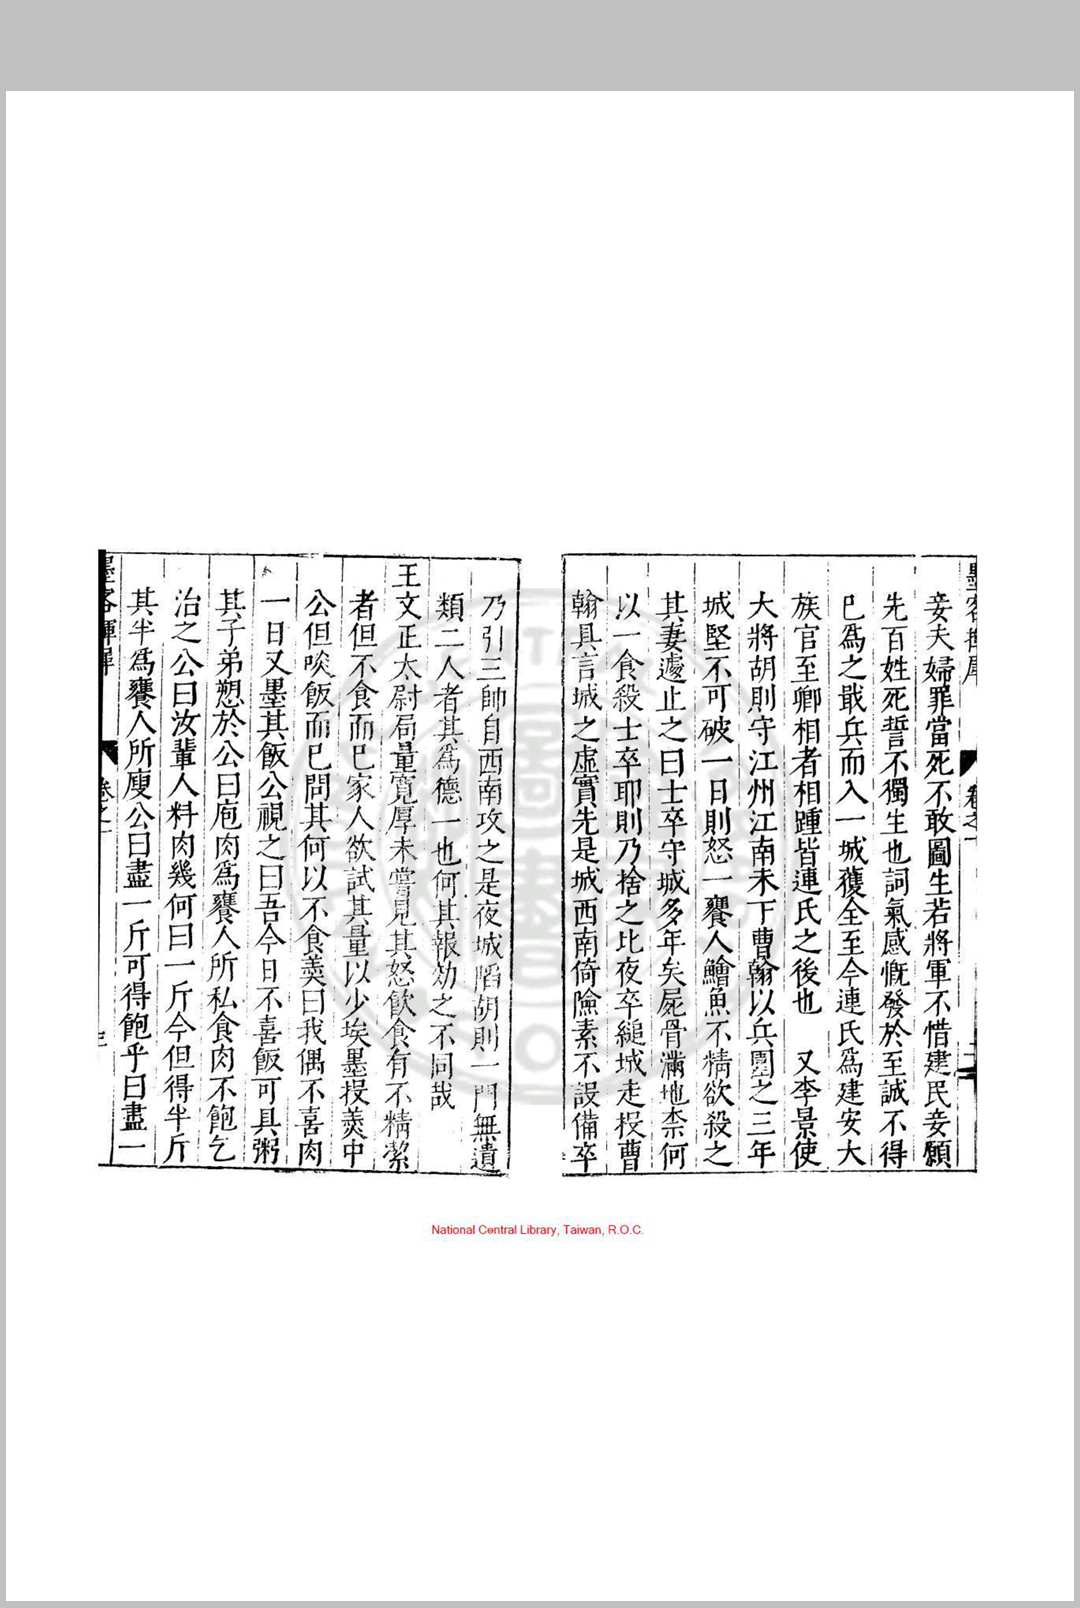 墨客揮犀
卷之一
妾夫婦罪當死不敢圖生若將軍不惜建民妾願
先百姓死誓不獨生也詞氣感慨發於至誠不得
已為之戢兵而入一城獲全至今連氏為建安大
族官至卿相者相踵皆連氏之後也 又李景使
大將胡則守江州江南未下曹翰以兵圍之三年
城堅不可破一日則怒一饔人鱠魚不精欲殺之
其妻遽止之曰士卒守城多年矣屍骨滿地柰何
以一食殺士卒耶則乃捨之比夜卒縋城走投曹
翰具言城之虛實先是城西南倚險素不設備卒
乃引三帥自西南攻之是夜城陷胡則一門無遺
類二人者其為德一也何其報効之不同哉
王文正太尉局量寬厚未嘗見其怒飲食有不精潔
者但不食而已家人欲試其量以少埃墨投羹中
公但啖飯而已問其何以不食羹曰我偶不喜肉
一日又墨其飯公視之曰吾今日不喜飯可具粥
其子弟愬於公曰庖肉為饔人所私食肉不飽乞
治之公曰汝輩人料肉幾何曰一斤今但得半斤
其半為饔人所廋公曰盡一斤可得飽乎曰盡一
墨客揮犀
卷之一
三
National Central Library, Taiwan, R.O.C.